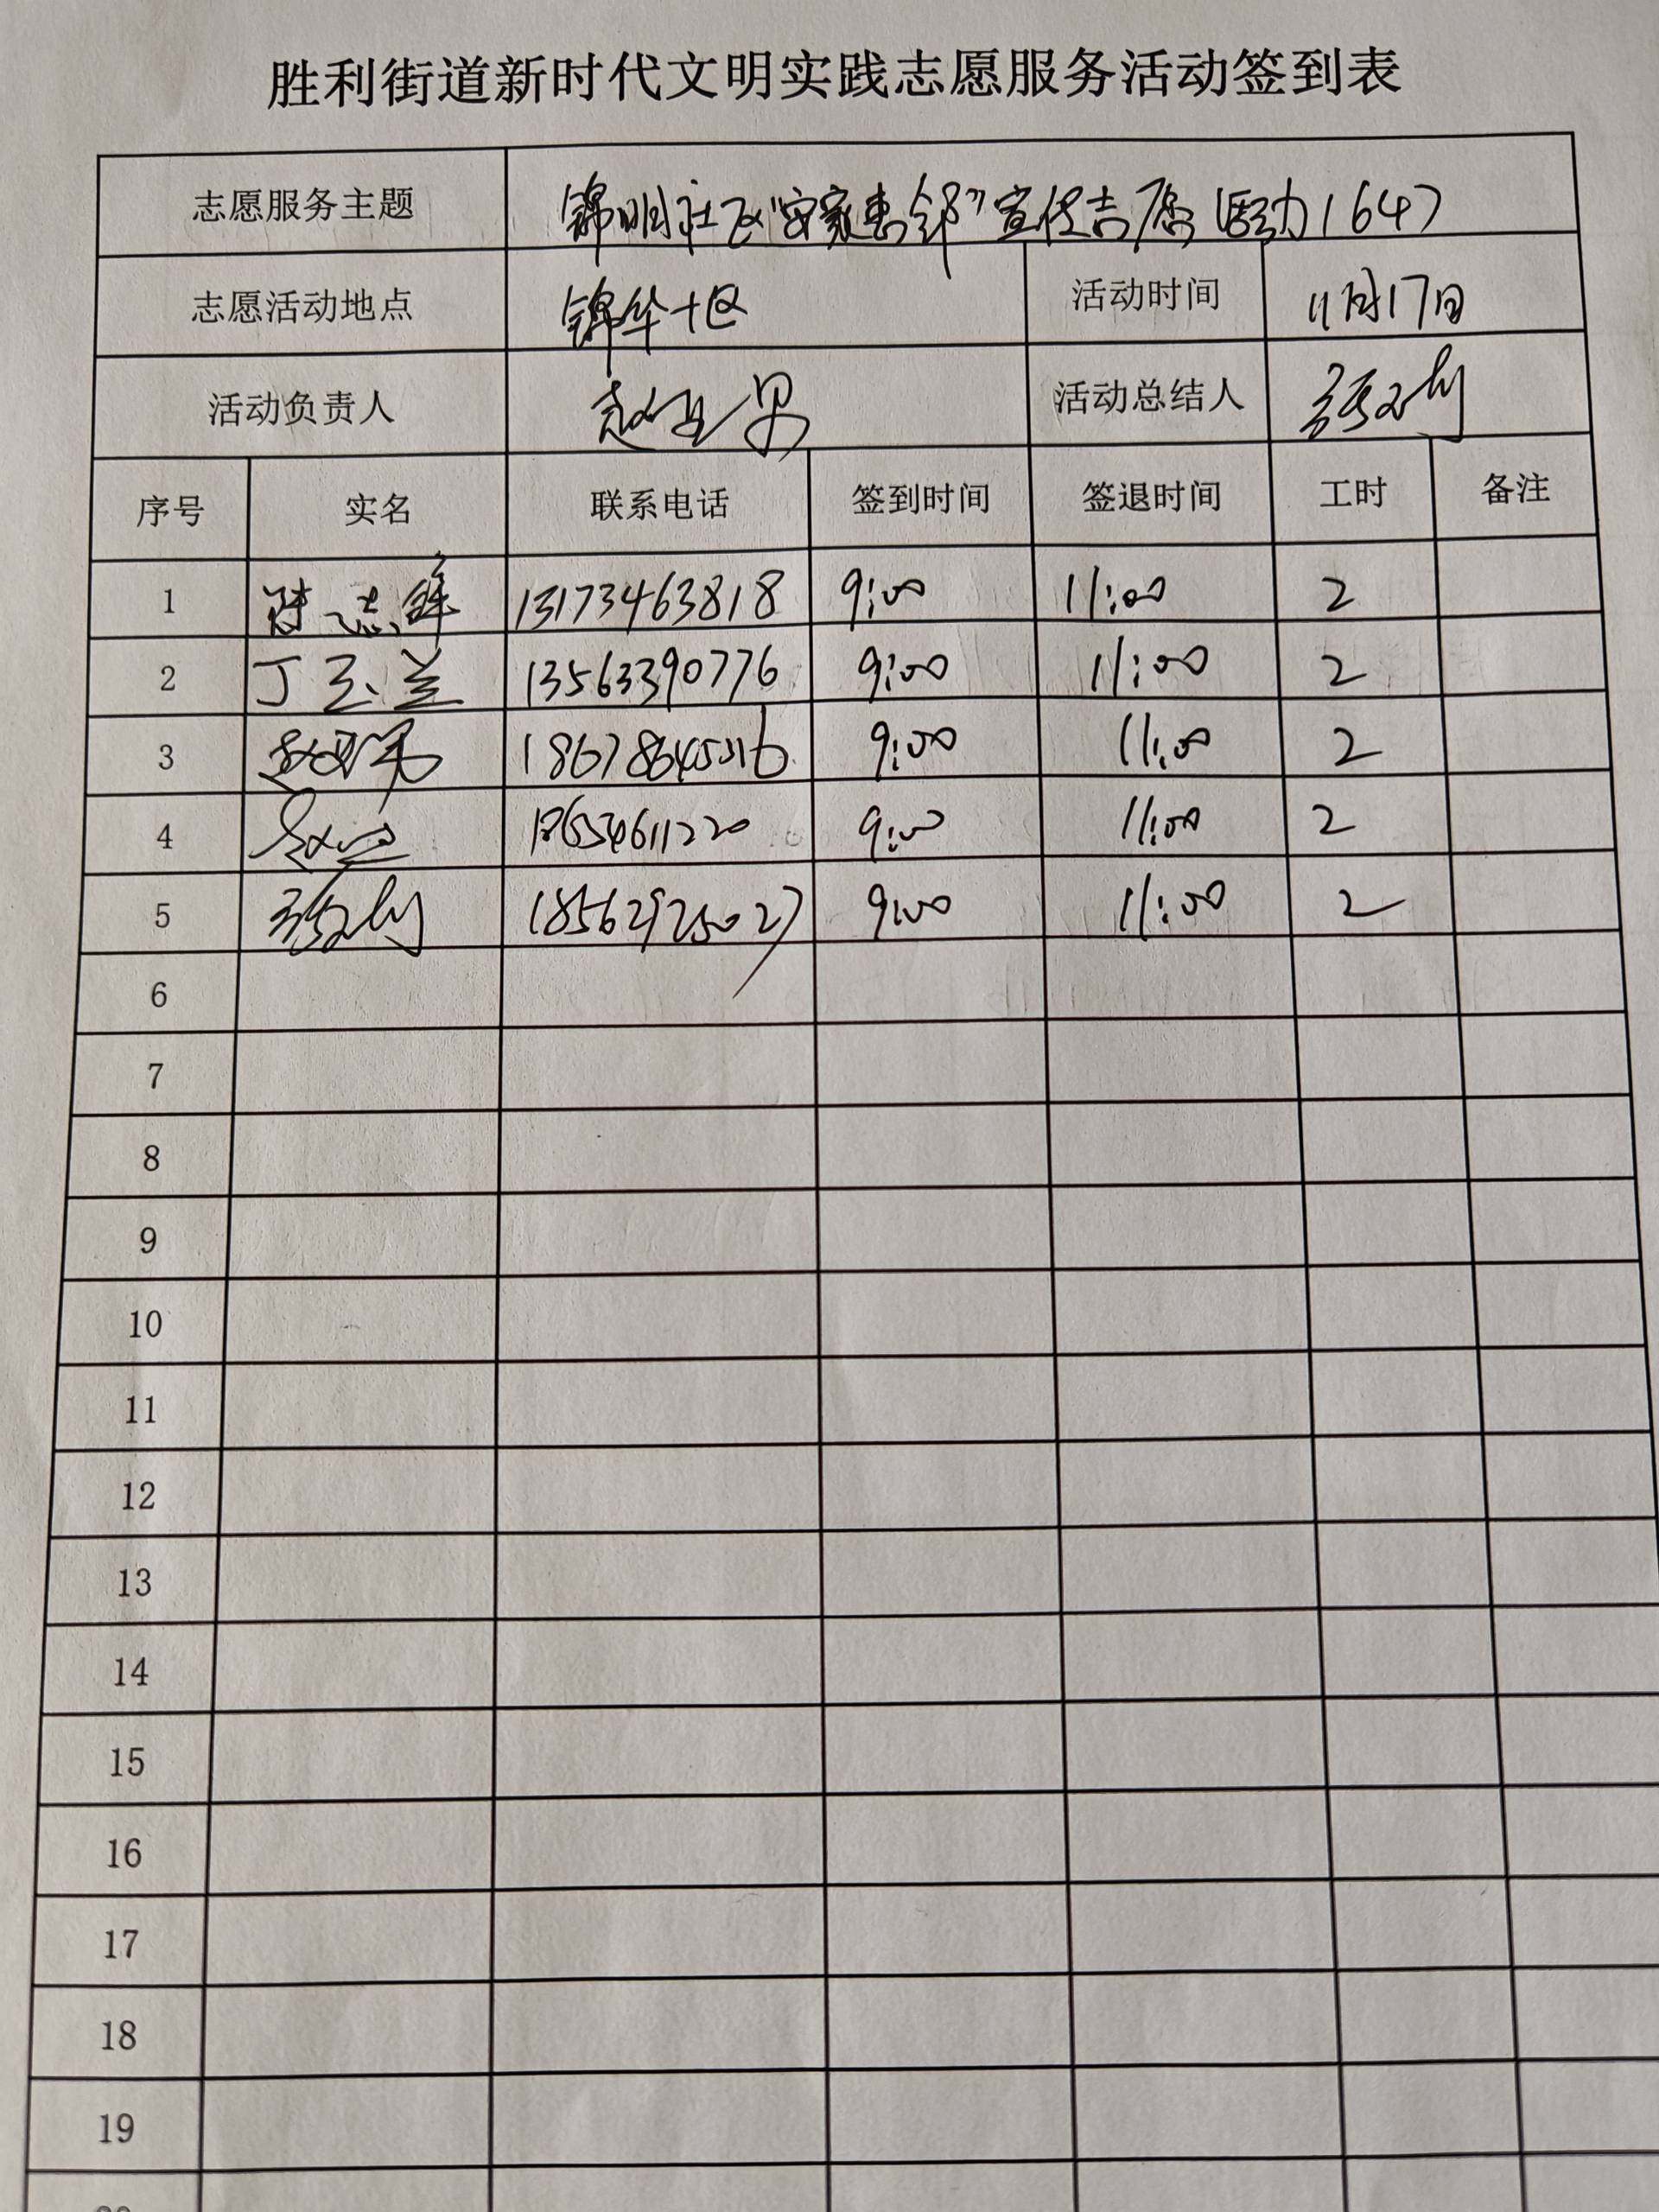 胜利街道新时代文明实践志愿服务活动签到表
志愿服务主题 锦明社区“安家惠邻”宣传志愿活动1647
志愿活动地点 锦华十区 活动时间 11月17日
活动负责人 活动总结人
序号 实名 联系电话 签到时间 签退时间 工时 备注
1 13173463818 9:00 11:00 2
2 丁玉兰 13563390776 9:00 11:00 2
3 9:00 11:00 2
4 18654611220 9:00 11:00 2
5 18562925027 9:00 11:00 2
6
7
8
9
10
11
12
13
14
15
16
17
18
19